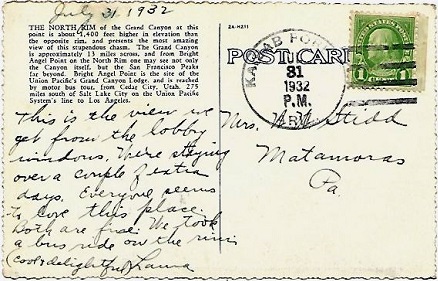 July 31, 1932
THE NORTH RIM of the Grand Canyon at this
point is about 1,400 feet higher in elevation than
the opposite rim, and presents the most amazing
view of this stupendous chasm. The Grand Canyon
is approximately 13 miles across, and from Bright
Angel Point on the North Rim one may see not only
the Canyon itself, but the San Francisco Peaks
far beyond. Bright Angel Point is the site of the
Union Pacific's Grand Canyon Lodge, and is reached
by motor bus tour, from Cedar City, Utah, 275
miles south of Salt Lake City on the Union Pacific
System's line to Los Angeles.
This is the view we
get from the lobby
windows. We're staying
over a couple extra
days. Everyone seems
to love this place.
Both are fine. We took
a bus ride on the rim
(cool & delightful) Laura
2A-H211
POST CARD
31
1932
P.M.
ARIZ.
1 CENT 1
Mrs. Stidd
Matamoras
Pa.